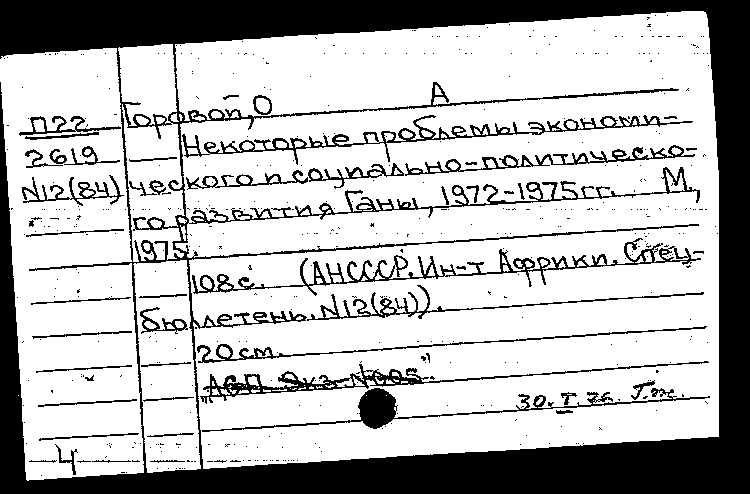 А
П22 Горовой, О
Некоторые проблемы экономи-
2619
N12(84) ческого и социально-политическо-
го развития Ганы, 1972-1975гг. М.,
1975.
108с. (АНСССР. Ин-т Африки. Спец-
бюллетень. N12(84)).
20см.
"ДСП Экз N005"
30.I.76.
4